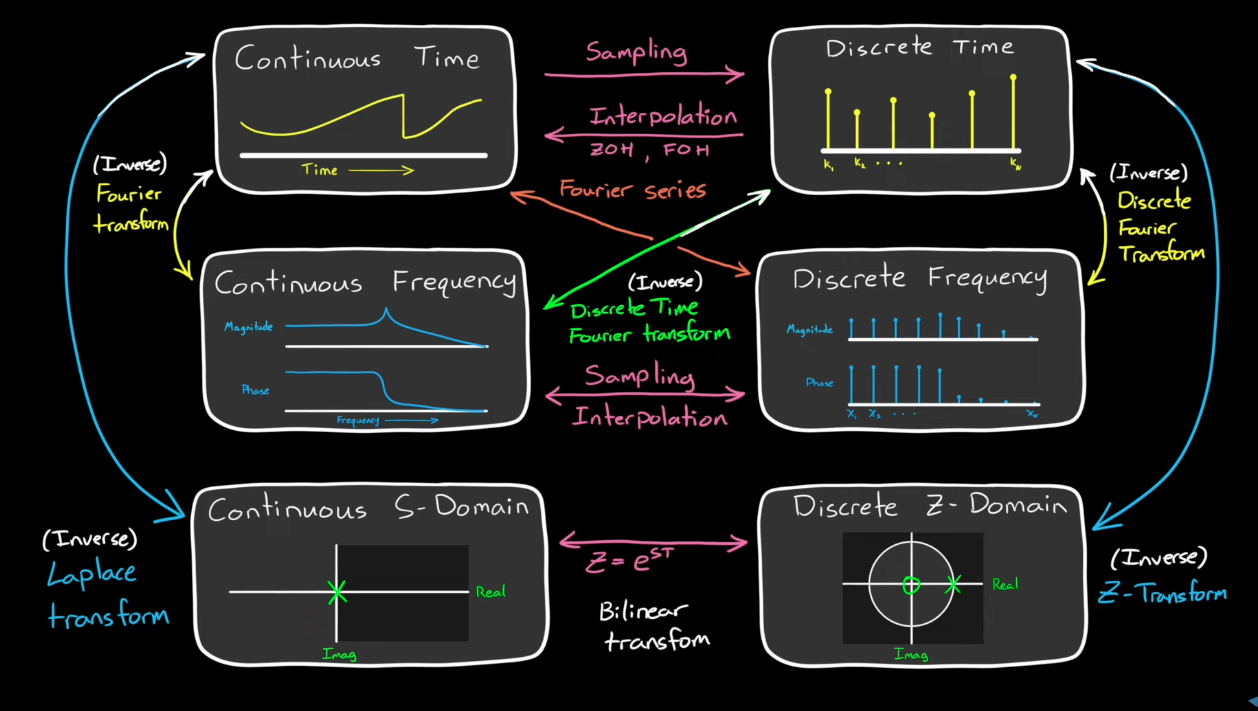 Continuous Time
Time
Sampling
Interpolation
ZOH, FOH
Discrete Time
k₁ k₂ ... kN
(Inverse)
Fourier
transform
Fourier series
(Inverse)
Discrete
Fourier
Transform
Continuous Frequency
Magnitude
Phase
Frequency
(Inverse)
Discrete Time
Fourier transform
Sampling
Interpolation
Discrete Frequency
Magnitude
Phase
x₁ x₂ ... xN
(Inverse)
Laplace
transform
Continuous S-Domain
Real
Imag
Z = e^ST
Bilinear
transfom
Discrete Z-Domain
Real
Imag
(Inverse)
Z-Transform